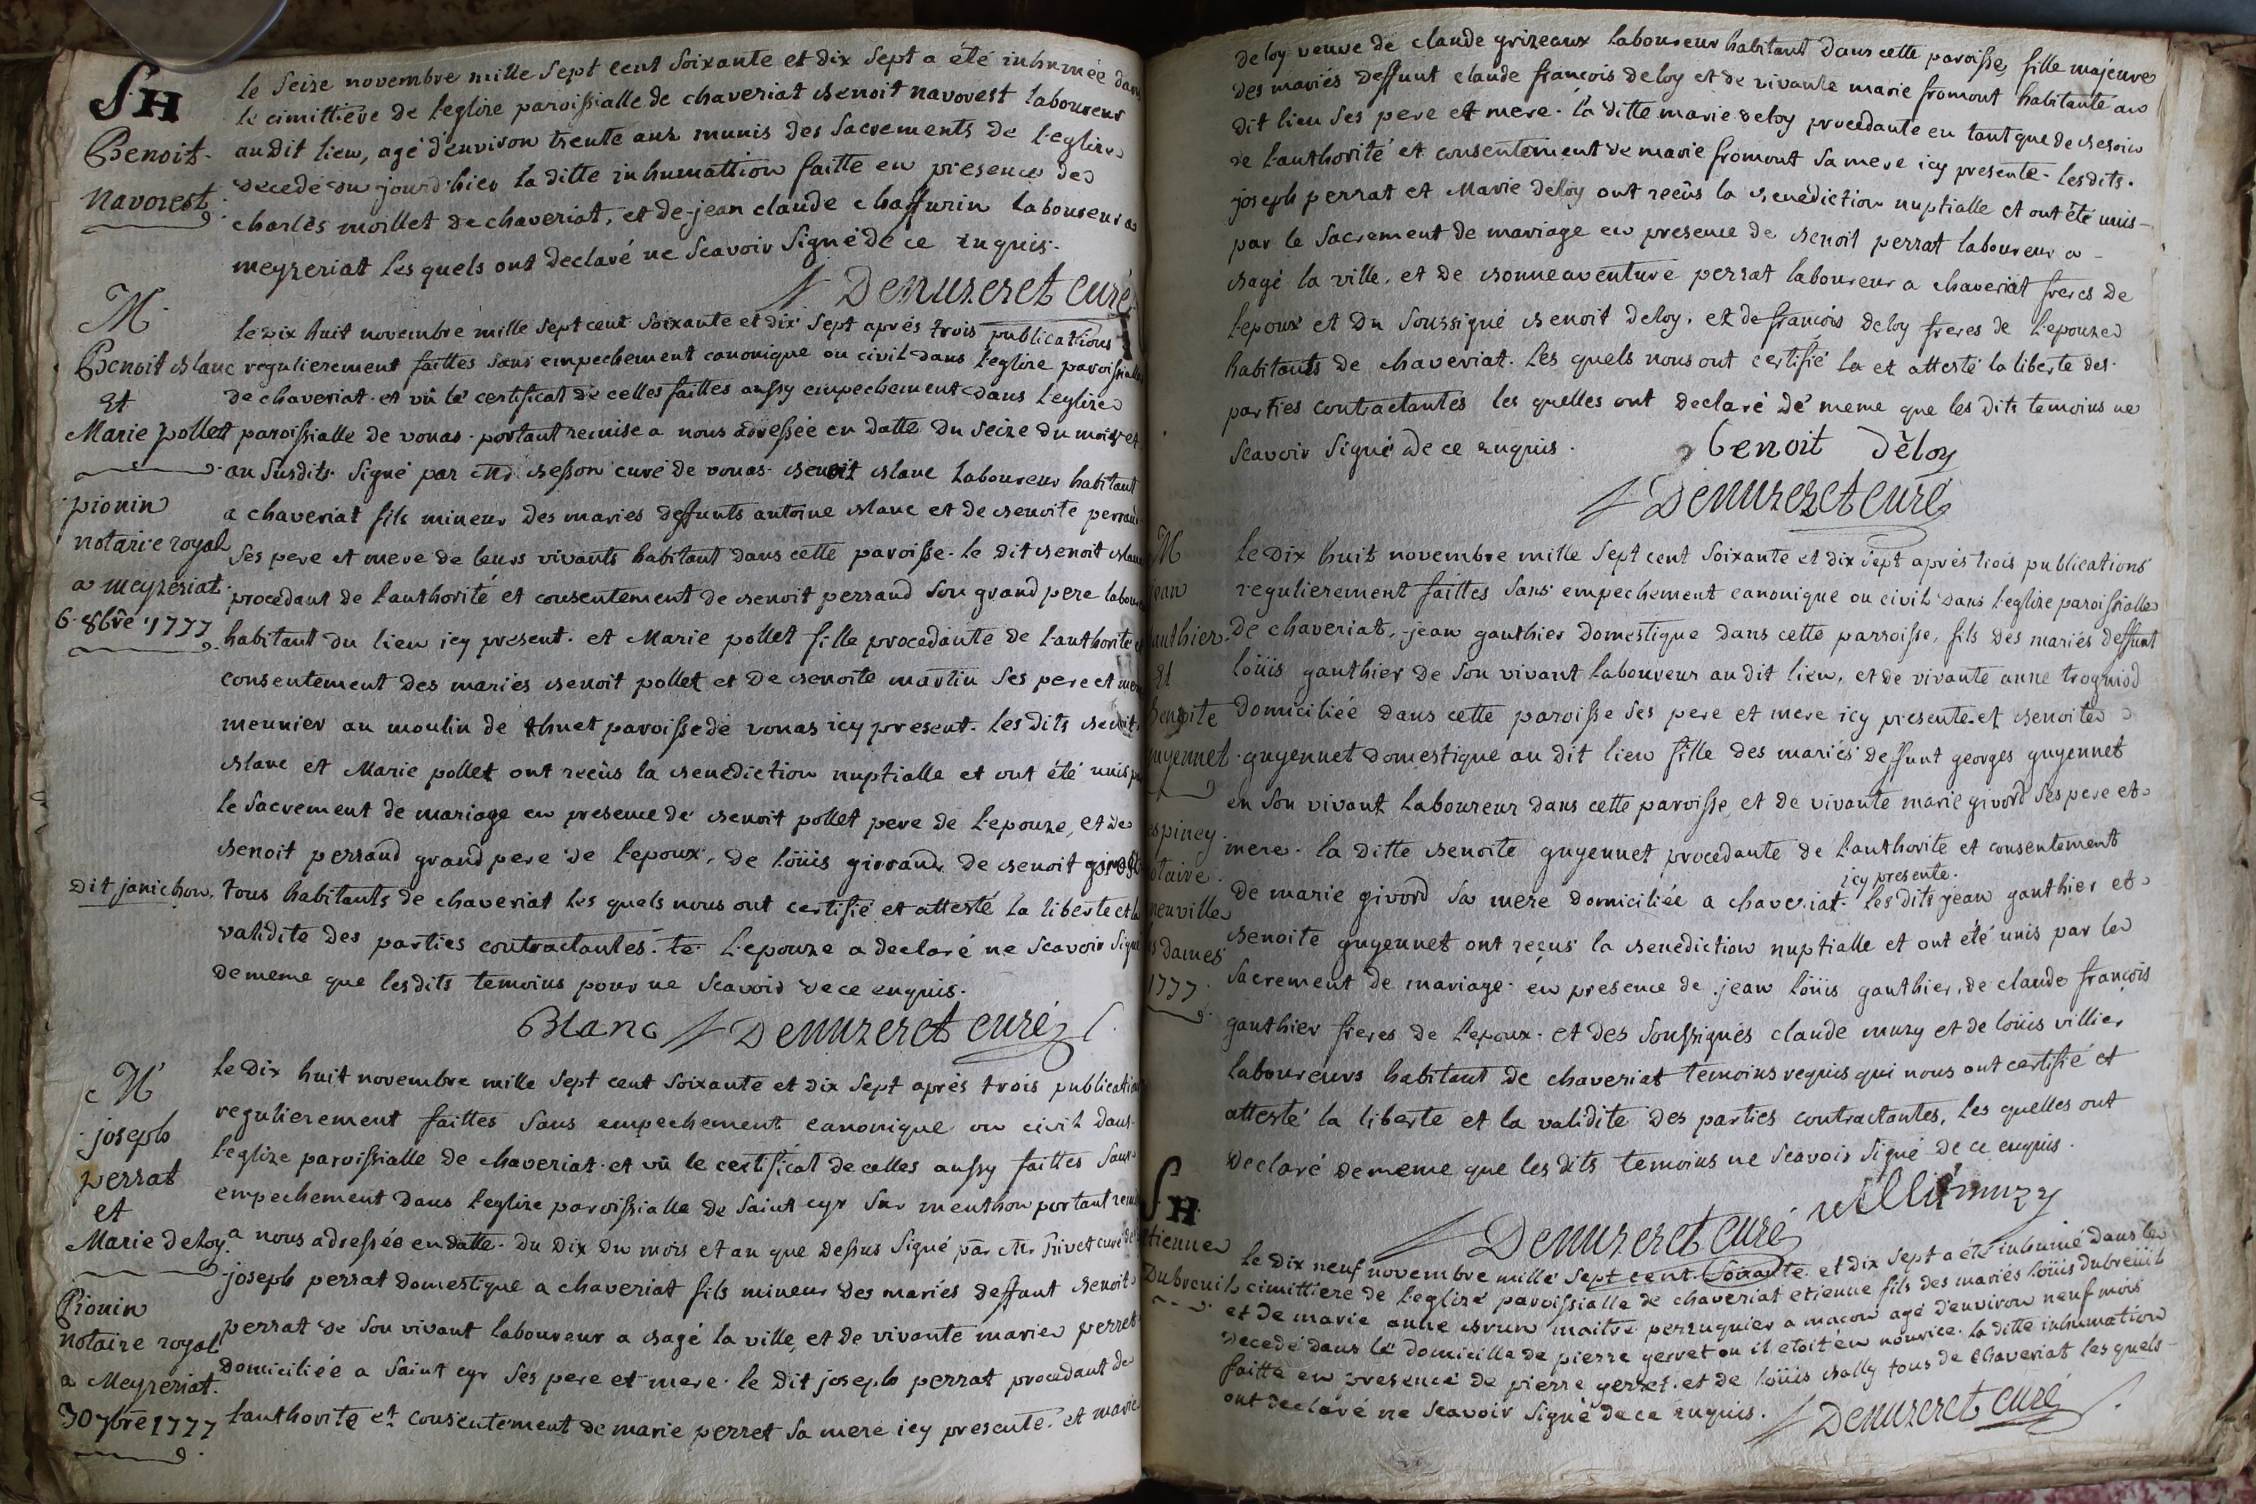 SH
Benoit
Navorest
le seize novembre mille sept cent soixante et dix sept a été inhumée dans
le cimittiere de l'eglize paroissialle de chaveriat benoit navorest laboureur
audit lieu, agé d'environ trente ans munis des sacrements de l'eglize
decedé du jourd'hier la ditte inhumattion faitte en presence de
charles moillet de chaveriat, et de jean claude chaffurin laboureur a
meyzeriat les quels ont declaré ne scavoir signé de ce enquis.
Denuzeret curé
M
Benoit blanc
et
Marie pollet
pionin
notaire royal
a meyzeriat
6 8bre 1777
le dix huit novembre mille sept cent soixante et dix sept aprés trois publications
regulierement faittes sans empechement canonique ou civil dans l'eglize paroissialle
de chaveriat et vû le certificat de celles faittes aussy empechement dans l'eglize
paroissialle de vonas portant remise a nous adressée en datte du seize du mois et
an susdits signé par Mr besson curé de vonas benoit blanc laboureur habitant
a chaveriat fils mineur des maries deffunts antoine blanc et de benoite perraud
ses pere et mere de leurs vivants habitant dans cette paroisse. le dit benoit blanc
procedant de l'authorité et consentement de benoit perraud son grand pere labour
habitant du lieu icy present. et Marie pollet fille procedante de l'authorité et
consentement des mariés benoit pollet et de benoite martin ses pere et mere
meunier au moulin de thuet paroisse de vonas icy present. les dits benoit
blanc et Marie pollet ont reçûs la benediction nuptialle et ont été unis par
le sacrement de mariage en presence de benoit pollet pere de l'epouze, et de
benoit perraud grand pere de l'epoux, de loüis girraud de benoit
dit janichon. tous habitants de chaveriat les quels nous ont certifié et attesté la liberte et la
validite des parties contractantes. l'epouze a declaré ne scavoir signé
de meme que les dits temoins pour ne scavoir de ce enquis.
Blanc Denuzeret curé
M
joseph
perrat
et
Marie deloy
Pionin
notaire royal
a Meyzeriat.
30 7bre 1777
le dix huit novembre mille sept cent soixante et dix sept aprés trois publications
regulierement faittes sans empechement canonique ou civil dans
l'eglize paroissialle de chaveriat et vû le certificat de celles aussy faittes sans
empechement dans l'eglize paroissialle de saint cyr sur menthon portant remise
a nous adressée en datte du dix du mois et an que dessus signé par Mr privet curé
joseph perrat domestique a chaveriat fils mineur des mariés deffunt benoit
perrat de son vivant laboureur a bagé la ville, et de vivante marie perret
domiciliée a saint cyr ses pere et mere. le dit joseph perrat procedant de
l'authorite et consentement de marie perret sa mere icy presente. et marie
deloy veuve de claude grizeaux laboureur habitant dans cette paroisse, fille majeure
des mariés deffunt claude francois deloy et de vivante marie fromont habitante au
dit lieu ses pere et mere. la ditte marie deloy procedante en tant que de besoin
de l'authorité et consentement de marie fromont sa mere icy presente. les dits
joseph perrat et Marie deloy ont reçûs la benediction nuptialle et ont été unis
par le sacrement de mariage en presence de benoit perrat laboureur a
bagé la ville, et de bonneaventure perrat laboureur a chaveriat freres de
l'epoux et du soussigné benoit deloy. et de francois deloy freres de l'epouze
habitants de chaveriat. les quels nous ont certifié la et attesté la liberte des
parties contractantes les quelles ont declaré de meme que les dits temoins ne
scavoir signé de ce enquis.
benoit dèloy
Denuzeret curé
M
jean
gauthier
et
Benoite
guyennet
espiney
notaire
neuville
les dames
1777
le dix huit novembre mille sept cent soixante et dix sept aprés trois publications
regulierement faittes sans empechement canonique ou civil dans l'eglize paroissialle
de chaveriat, jean gauthier domestique dans cette parroisse, fils des mariés deffunt
loüis gauthier de son vivant laboureur au dit lieu, et de vivante anne trogniod
domiciliée dans cette paroisse ses pere et mere icy presente et benoite
guyennet domestique au dit lieu fille des mariés deffunt georges guyennet
en son vivant laboureur dans cette paroisse et de vivante marie givord ses pere et
mere. la ditte benoite guyennet procedante de l'authorite et consentement
icy presente.
de marie givord sa mere domiciliée a chaveriat. les dits jean gauthier et
benoite guyennet ont reçus la benediction nuptialle et ont été unis par le
sacrement de mariage en presence de jean loüis gauthier, de claude françois
gauthier freres de l'epoux. et des soussignés claude muzy et de loüis villier
laboureurs habitant de chaveriat temoins requis qui nous ont certifié et
attesté la liberte et la validite des parties contractantes, les quelles ont
declaré de meme que les dits temoins ne scavoir signé de ce enquis.
villié muzy
Denuzeret curé
SH
Etienne
Dubreuil
le dix neuf novembre mille sept cent soixante et dix sept a été inhumé dans le
cimittiere de l'eglize paroissialle de chaveriat etienne fils des mariés loüis dubreüil
et de marie anne brun maitre perruquier a macon agé d'environ neuf mois
decedé dans le domicille de pierre gerret ou il etoit en nourice. la ditte inhumation
faitte en presence de pierre gerret. et de loüis bally tous de chaveriat les quels
ont declaré ne scavoir signé de ce enquis.
Denuzeret curé